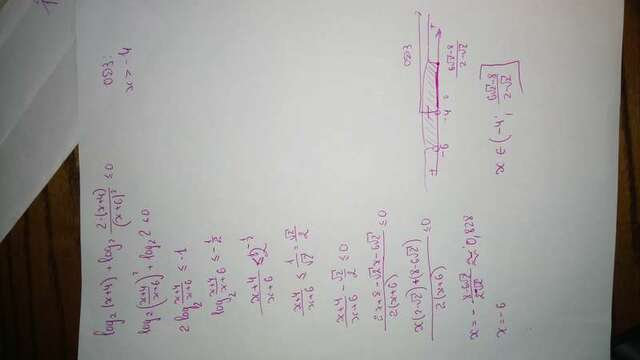 log₂(x+4) + log₂ 2·(x+4)/(x+6)² ≤ 0
ОДЗ:
x > -4
log₂(x+4/x+6)² + log₂ 2 ≤ 0
2 log₂ x+4/x+6 ≤ -1
log₂ x+4/x+6 ≤ -1/2
x+4/x+6 ≤
x+4/x+6 ≤ 1/√2 = √2/2
x+4/x+6 - √2/2 ≤ 0
2x+8-√2x-6√2/2(x+6) ≤ 0
x(2-√2)+(8-6√2)/2(x+6) ≤ 0
ОДЗ
+ -6 -4 + 6√2-8/2-√2
x = - 8-6√2/2-√2 ≈ 0,828
x = -6
x ∈ (-4; 6√2-8/2-√2]